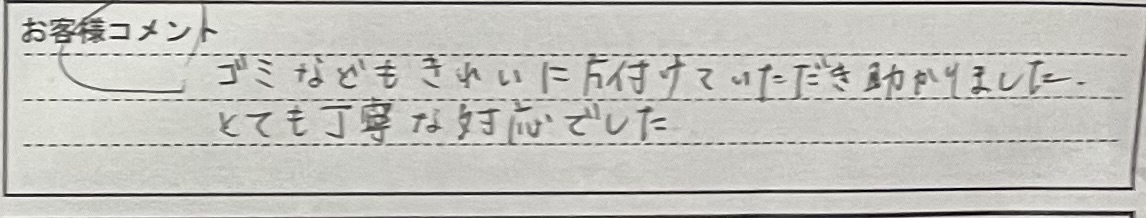 お客様コメント
ゴミなどもきれいに片付けていただき助かりました.
とても丁寧な対応でした